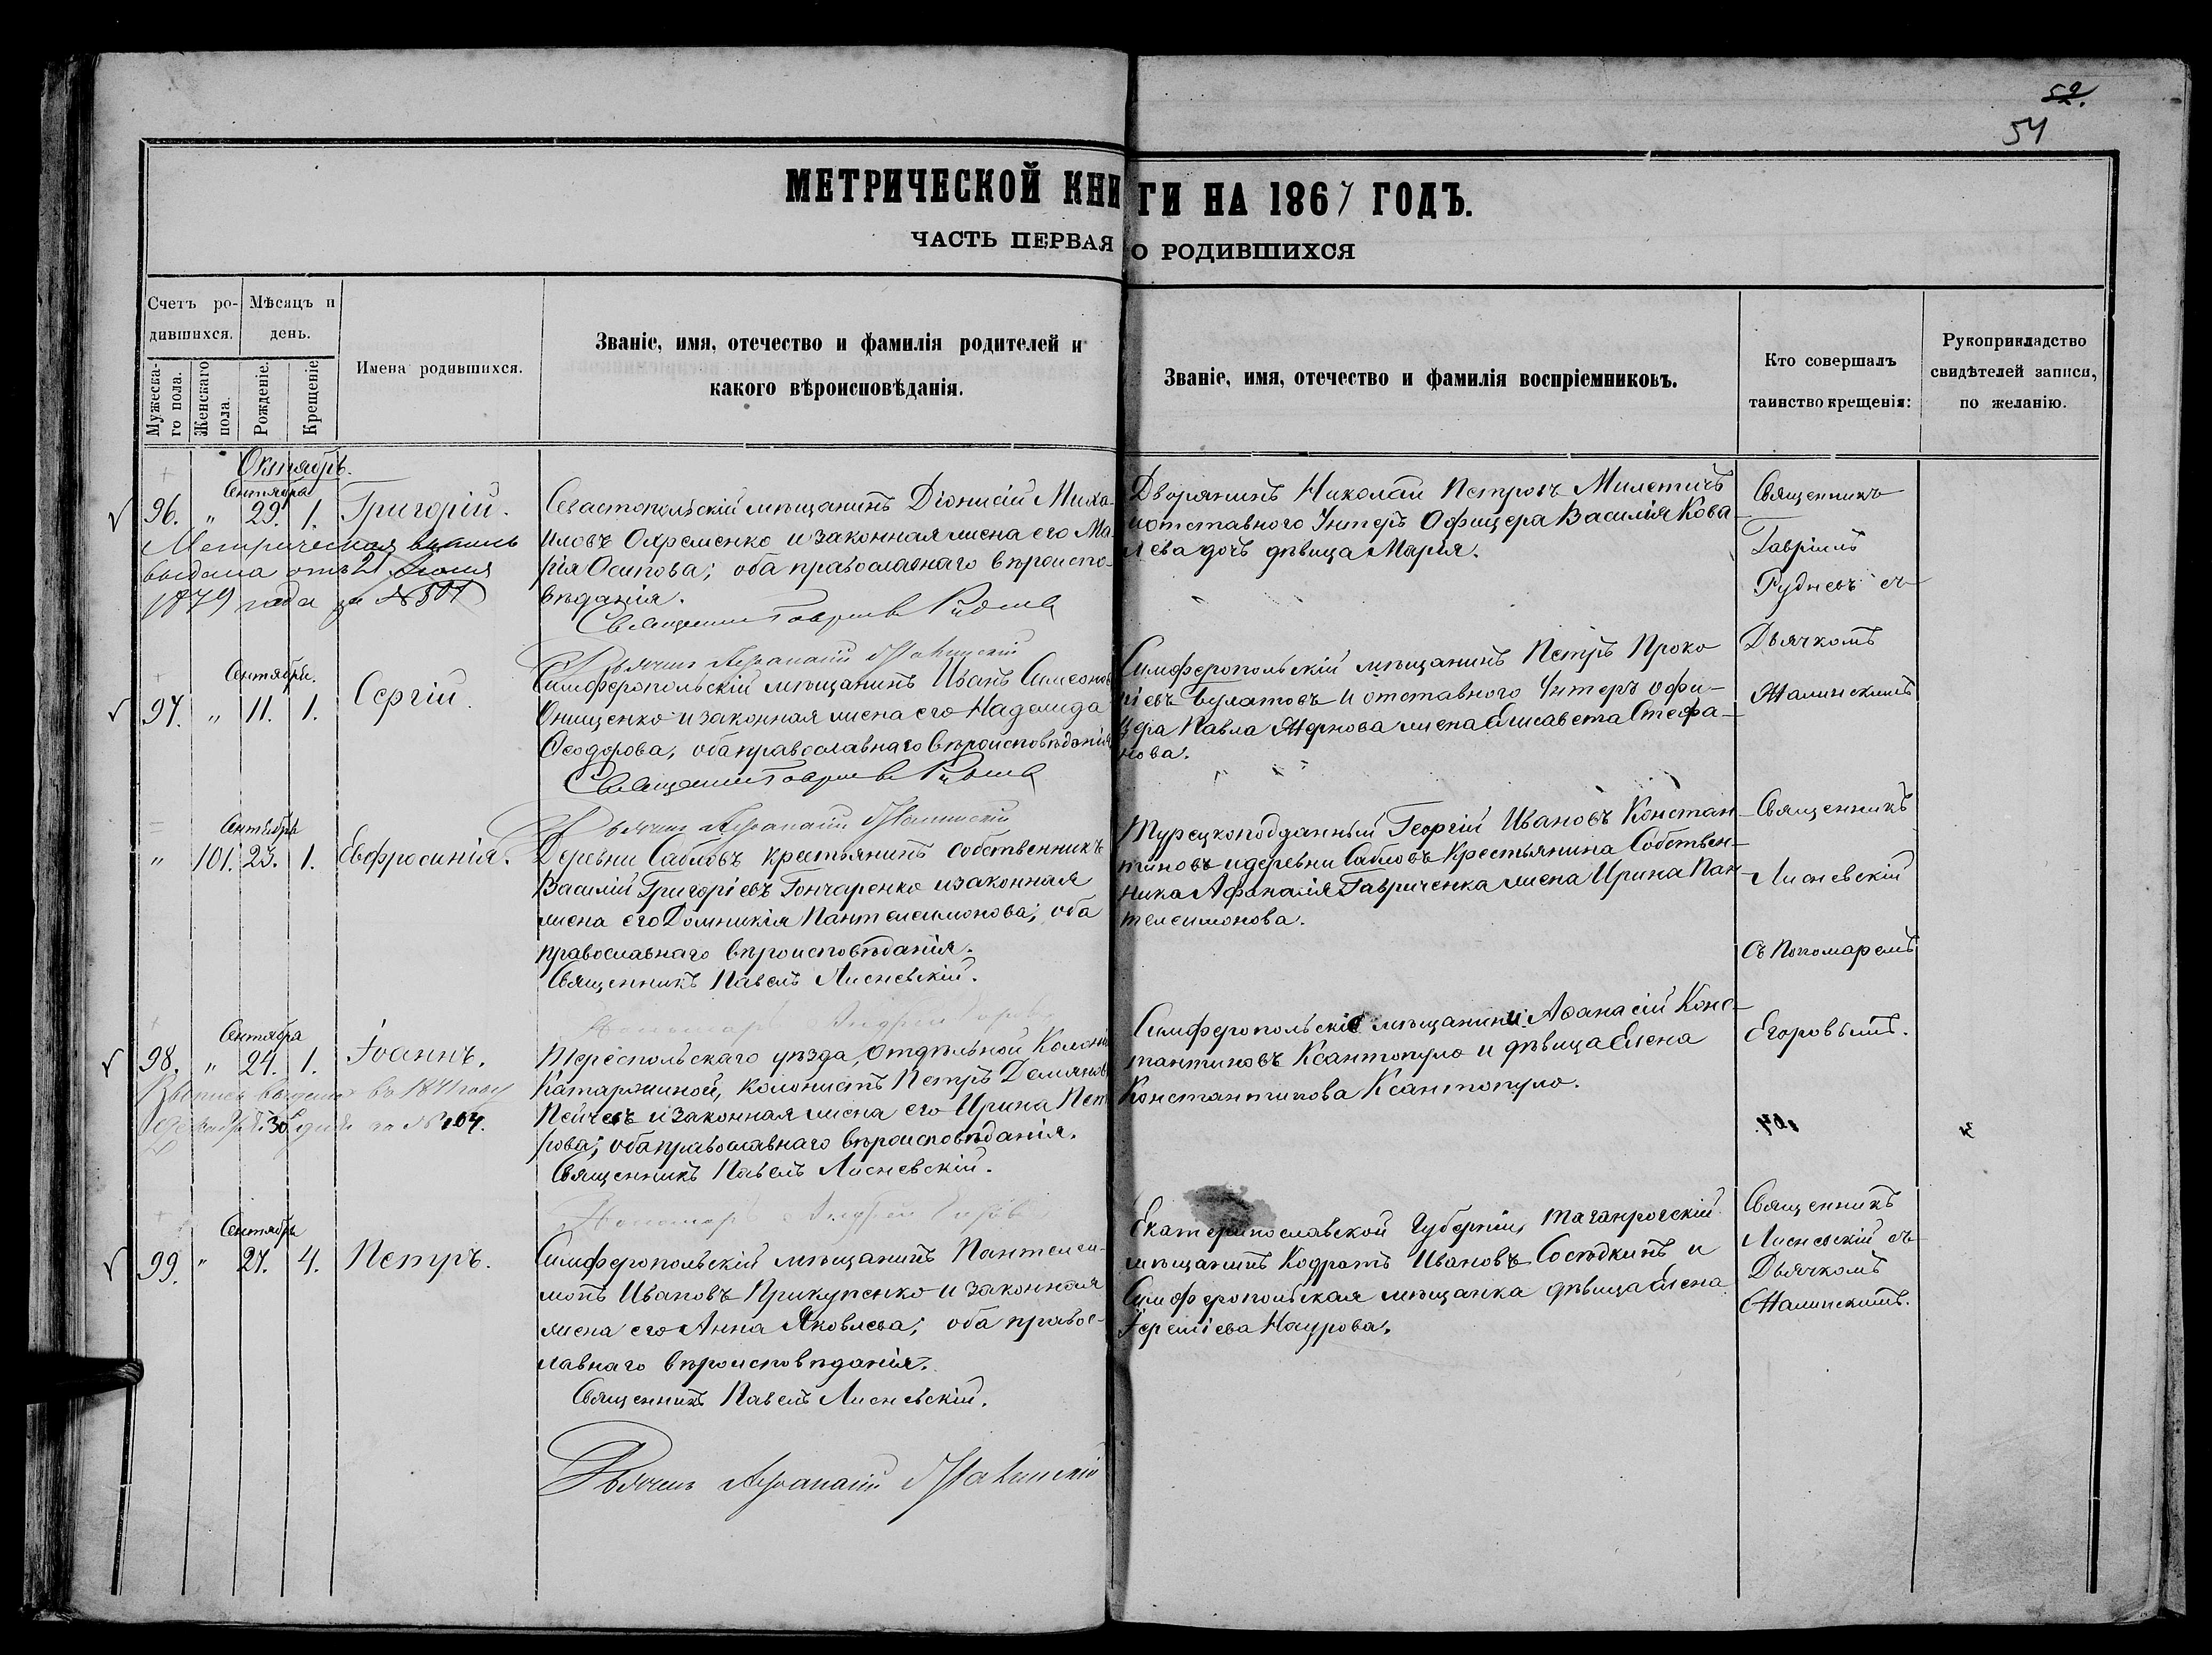 52.
54
МЕТРИЧЕСКОЙ КНИГИ НА 1867 ГОДЪ.
ЧАСТЬ ПЕРВАЯ О РОДИВШИХСЯ
Счетъ ро-
дившихся.
Мѣсяцъ и
день.
Мужеска-
го пола.
Женскаго
пола.
Рожденіе.
Крещеніе
Имена родившихся.
Званіе, имя, отечество и фамилія родителей и
какого вѣроисповѣданія.
Званіе, имя, отечество и фамилія воспріемниковъ.
Кто совершалъ
таинство крещенія:
Рукоприкладство
свидѣтелей записи,
по желанію.
Октябрь.
Сентября
96. " 29. 1. Григорій.
Метрическая выпись
выдана отъ 21
1879 года за № 501
Севастопольскій мѣщанинъ Діонисій Миха-
иловъ Охременко и законная жена его Ма-
рія Осипова; оба православнаго вѣроиспо-
вѣданія.
Священникъ Гавріилъ Рудневъ
Дьячекъ Афанасій
Дворянинъ Николай Петровъ Милетичъ
и отставного Унтеръ Офицера Василія Кова-
лева дочь дѣвица Марія.
Священникъ
Гавріилъ
Рудневъ съ
Дьячкомъ
Жалинскимъ
Сентября.
97. " 11. 1. Сергій.
Симферопольскій мѣщанинъ Иванъ Симеоновъ
Онищенко и законная жена его Надежда
Ѳеодорова, оба православнаго вѣроисповѣданія
Священникъ Гавріилъ Рудневъ
Дьячекъ Афанасій
Симферопольскій мѣщанинъ Петръ Проко-
піевъ Булатовъ и отставного Унтеръ офи-
цера Павла Жернова жена Елисавета Стефа-
нова.
Сентября
" 101. 23. 1. Евфросинія.
Деревни Сабловъ крестьянинъ собственникъ
Василій Григоріевъ Гончаренко и законная
жена его Домникія Пантелеимонова; оба
православнаго вѣроисповѣданія.
Священникъ Павелъ Лисневскій.
Пономарь Андрей Егоровъ
Турецкоподданный Георгій Ивановъ Констан-
тиновъ и деревни Сабловъ Крестьянина Собствен-
ника Афанасія Гавриченка жена Ирина Пан-
телеимонова.
Священникъ
Лисневскій
съ Пономаремъ
Егоровымъ.
Сентября
98. " 24. 1. Іоаннъ.
Выпись выдана въ 1871 году
30 дня за № 104.
уѣзда, отдѣльной Колоніи
Катаржиной, колонистъ Петръ Демяновъ
Пейчевъ и законная жена его Ирина Пет-
рова; оба православнаго вѣроисповѣданія.
Священникъ Павелъ Лисневскій.
Пономарь Андрей Егоровъ
Симферопольскіе мѣщанини: Аѳанасій Конс-
тантиновъ Ксантопуло и дѣвица Елена
Константинова Ксантопуло.
Сентября
99. " 27. 4. Петръ.
Симферопольскій мѣщанинъ Пантелеи-
монъ Ивановъ Прикупенко и законная
жена его Анна Яковлева; оба правос-
лавнаго вѣроисповѣданія.
Священникъ Павелъ Лисневскій.
Дьячекъ Афанасій
Екатеринославской Губерніи, Таганрогскій
мѣщанинъ Кодратъ Ивановъ Сосѣдкинъ и
Симферопольская мѣщанка дѣвица Елена
Іереміева Наурова.
Священникъ
Лисневскій съ
Дьячкомъ
Жалинскимъ.